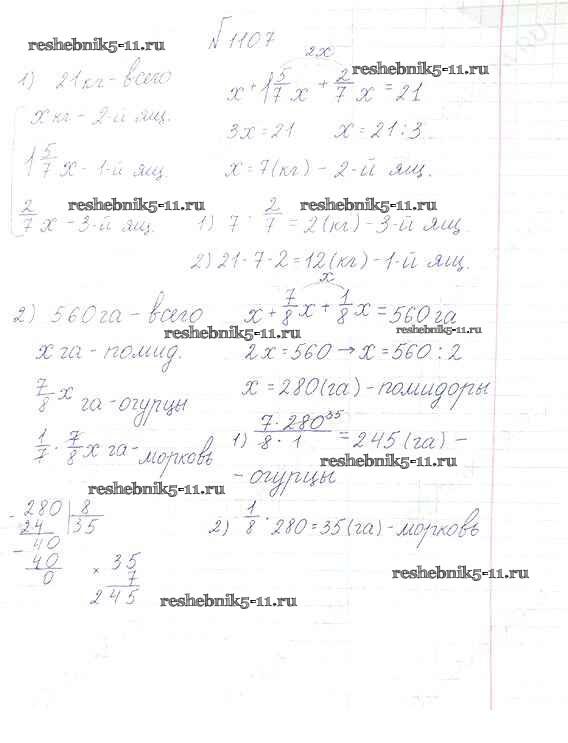 № 1107
reshebnik5-11.ru
1) 21 кг - всего
x кг - 2-й ящ.
1 5/7 x - 1-й ящ.
2/7 x - 3-й ящ.
2x
reshebnik5-11.ru
x + 1 5/7 x + 2/7 x = 21
3x = 21 x = 21 : 3
x = 7 (кг) - 2-й ящ.
reshebnik5-11.ru
reshebnik5-11.ru
1) 7 · 2/7 = 2 (кг) - 3-й ящ.
2) 21 - 7 - 2 = 12 (кг) - 1-й ящ.
2) 560 га - всего
reshebnik5-11.ru
x га - помид.
7/8 x га - огурцы
1/7 · 7/8 x га - морковь
x
x + 7/8 x + 1/8 x = 560 га
reshebnik5-11.ru
2x = 560 → x = 560 : 2
x = 280 (га) - помидоры
1) 7 · 280 35 / 8 · 1 = 245 (га) -
reshebnik5-11.ru
- огурцы
reshebnik5-11.ru
2) 1/8 · 280 = 35 (га) - морковь
- 280 | 8
24 35
- 40
40
0
× 35
7
245
reshebnik5-11.ru
reshebnik5-11.ru